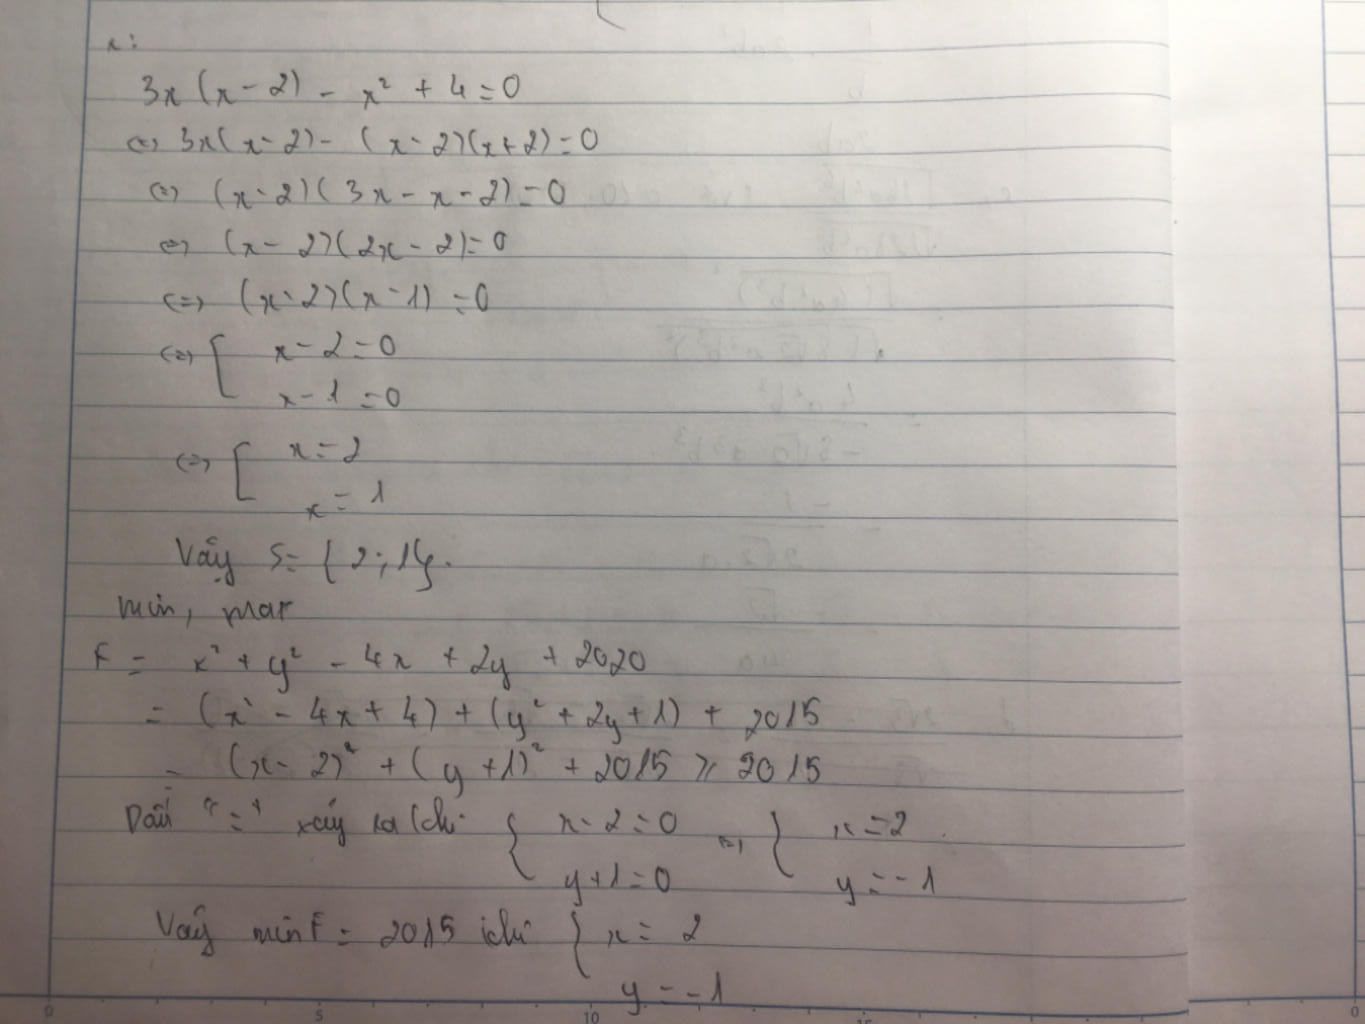 x:
3x(x-2) - x² + 4 = 0
<=> 3x(x-2) - (x-2)(x+2) = 0
<=> (x-2)(3x-x-2) = 0
<=> (x-2)(2x-2) = 0
<=> (x-2)(x-1) = 0
<=> [ x-2 = 0
x-1 = 0
<=> [ x = 2
x = 1
Vậy S = {2;1}.
min, max
F = x² + y² - 4x + 2y + 2020
= (x² - 4x + 4) + (y² + 2y + 1) + 2015
= (x-2)² + (y+1)² + 2015 ≥ 2015
Dấu "=" xảy ra khi { x-2 = 0 <=> { x = 2
y+1 = 0 y = -1
Vậy minF = 2015 khi { x = 2
y = -1
0 5 10 15 0